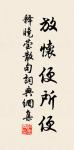 放懷便所便
釋曉瑩散句詞典網集